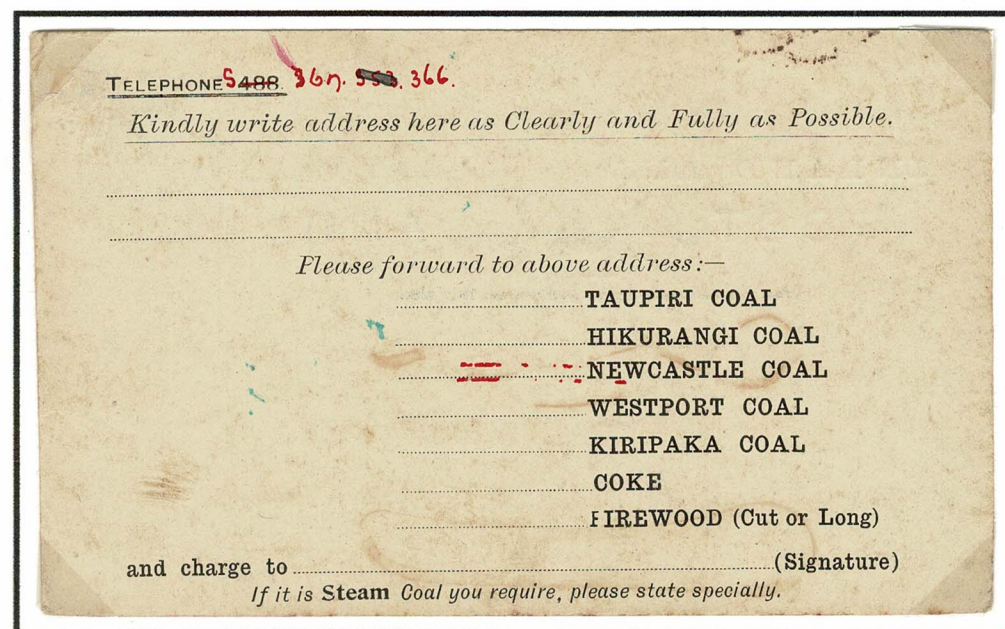 TELEPHONE 488. 367. 366.
Kindly write address here as Clearly and Fully as Possible.
Please forward to above address:—
TAUPIRI COAL
HIKURANGI COAL
NEWCASTLE COAL
WESTPORT COAL
KIRIPAKA COAL
COKE
FIREWOOD (Cut or Long)
and charge to (Signature)
If it is Steam Coal you require, please state specially.